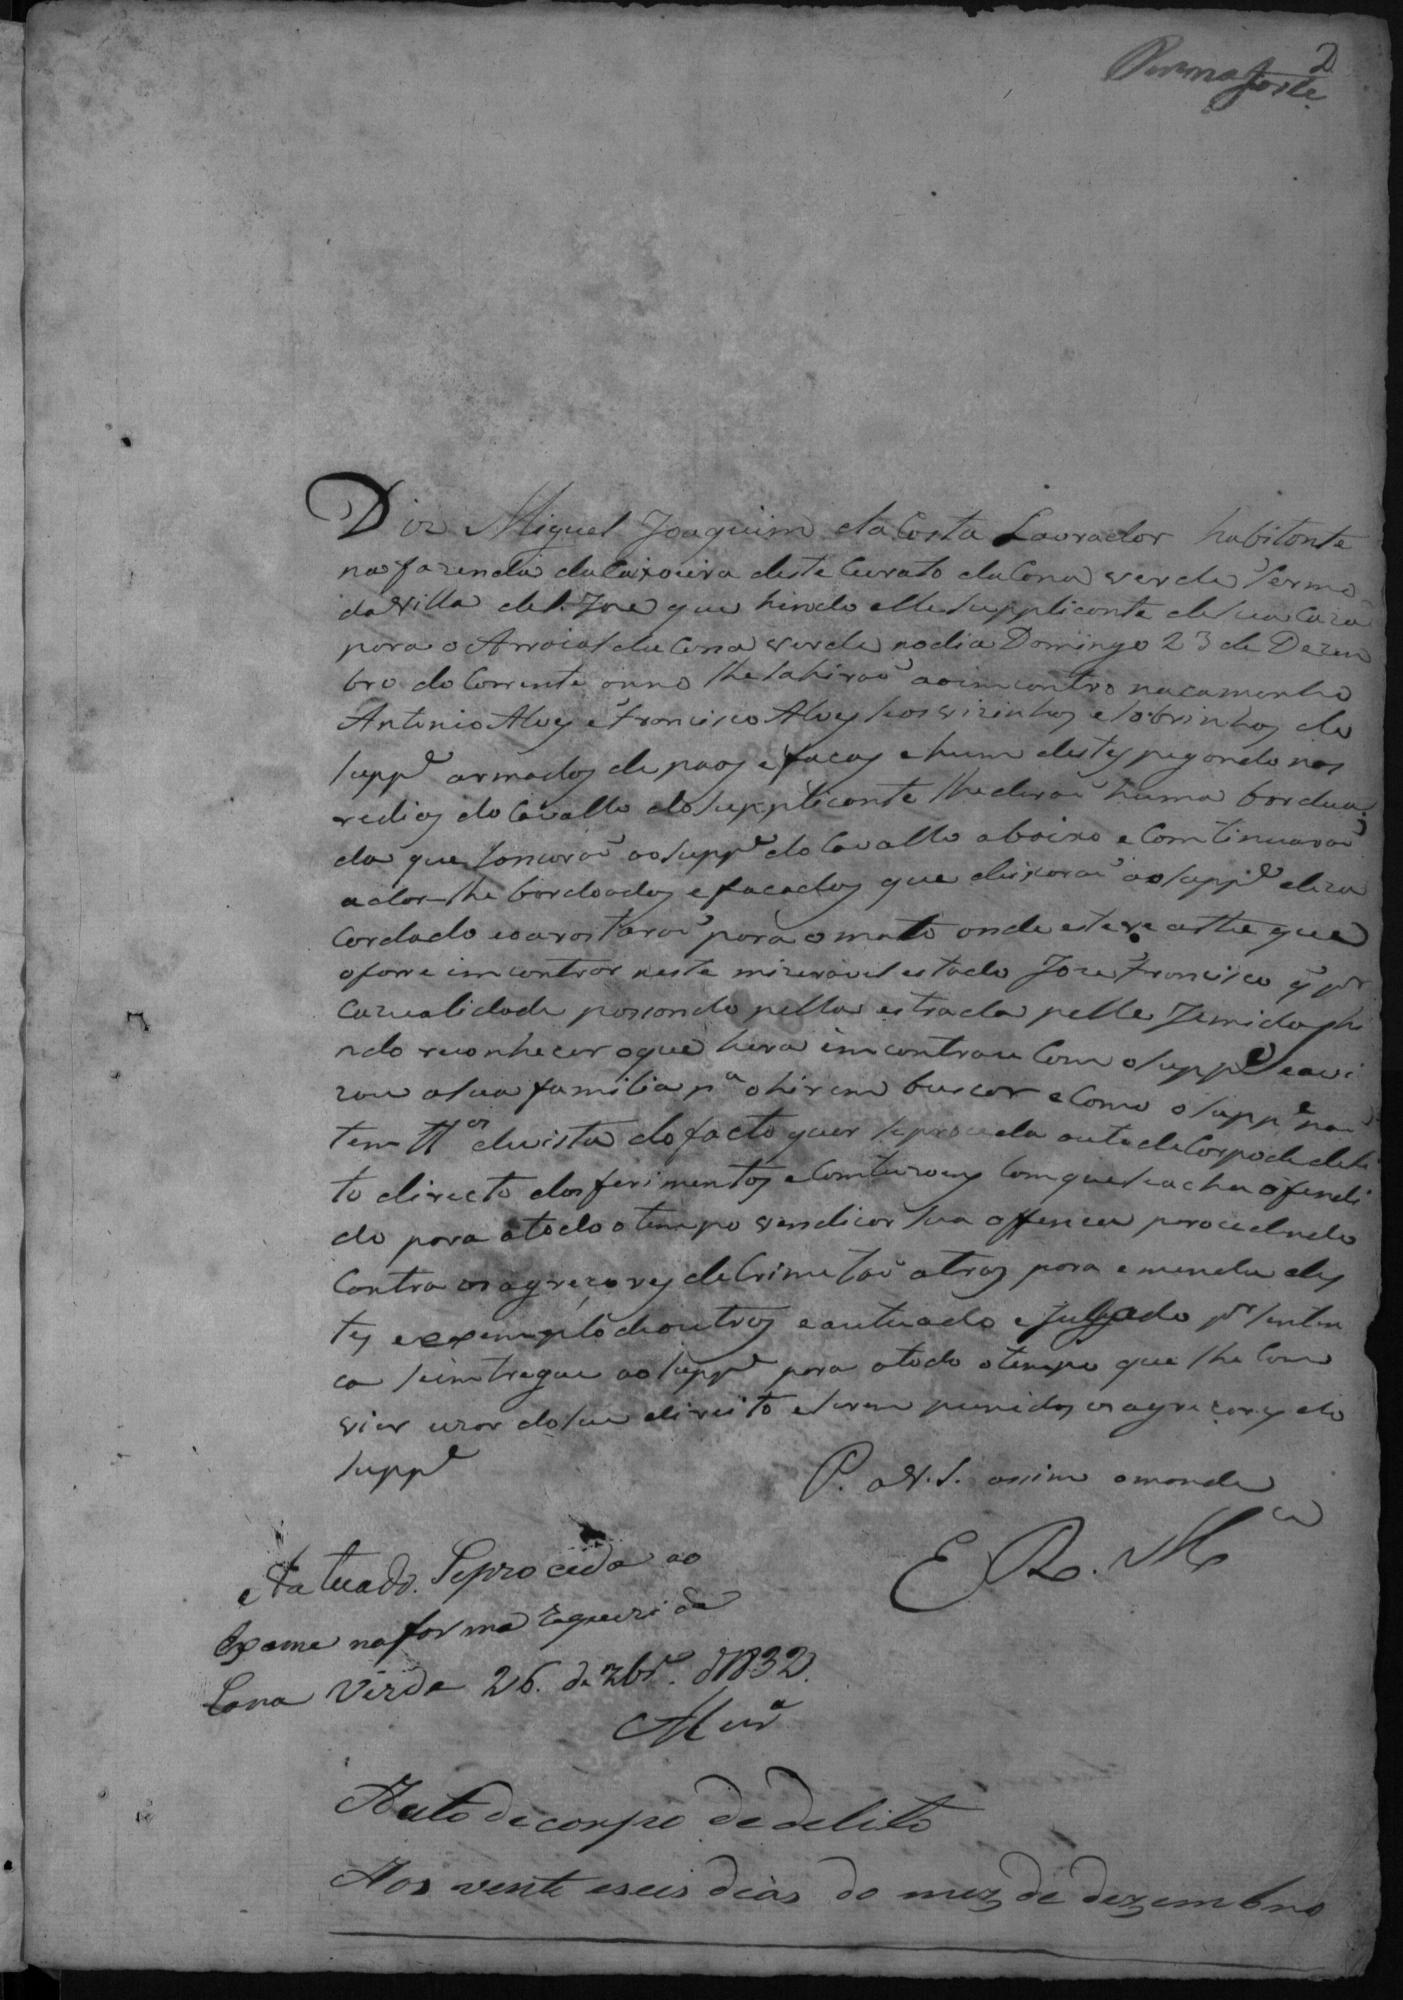 2
Diz Miguel Joaquim da Costa Lavrador habitante
na fazenda da Caxoeira deste Curato da Cana verde Termo
da Villa de S. Joze que hindo elle supplicante de sua Caza
para o Arraial da Cana verde no dia Domingo 23 de Dezem
bro do Corrente anno lhe sahiraõ ao imcontro na caminho
Antonio Alvẽs e Francisco Alvẽs seos vizinhos e sobrinhos do
suppe armados de paos e facas e hum destes pegando nas
redias do Cavallo do supplicante lhe deraõ huma bordua
da que lancaraõ ao suppe do Cavallo abaixo e Comtinuaraõ
a dar-lhe bordoados e facadas que dixaraõ ao suppe deza
Cordado e o arastaraõ para o mato onde esteve athe que
o fore imcontrar neste mizeravel estado Joze Francisco q̃ pr
Cazualidade pasando pella estrada
ndo reconhecer o que hera imcontrau Com o suppe e avi
zou a sua familia pa o hirem buscar e Como o suppe naõ
tem Ttas de vista do facto quer se proceda auto de Corpo de deli
to directo dos ferimentos e Comtuzoẽs Com que se acha ofendi
do para a todo o tempo vendicar sua offenca porcedendo
Contra os agrecores de Crime taõ atros para emenda des
tes e exemplo de outros e autuado e julgado pr senten
ca se imtregue ao suppe para a todo o tempo que lhe Com
vier uzar do seu direito e serem punidos os agrecores do
suppe
P. a V. S. assim o mande
E. R. Mce
Autuado. Se proceda ao
Exame na forma requerida
Cana Verde 26. de xbro. d 1832.
Auto de corpo de delito
Aos vente e seis dias do mez de dezembro